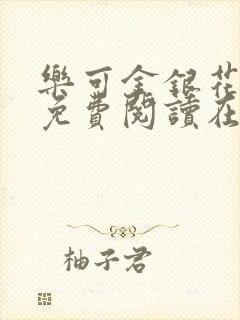 樂可金銀花
免費閱讀在
柚子君